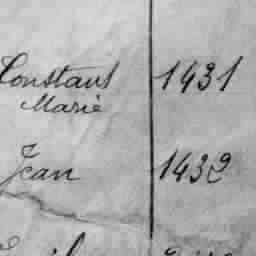 Constant 1431
Marie
Jean 1432